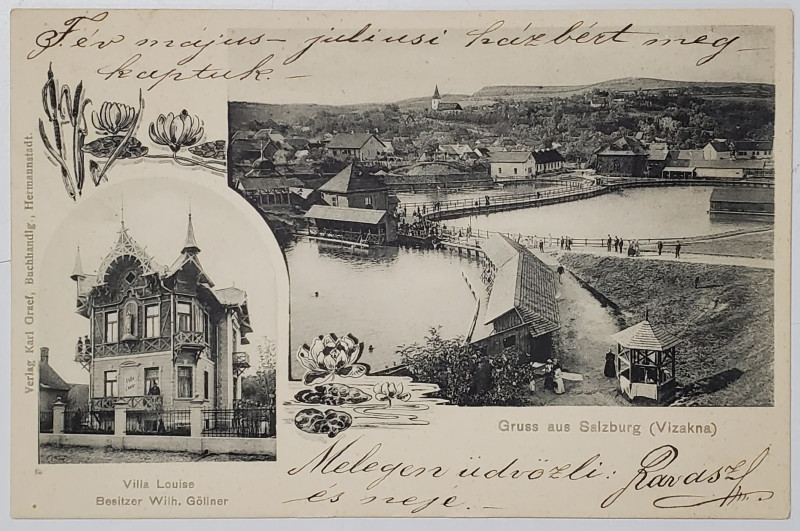 Fév május - juliusi házbért meg-
kaptuk. -
Verlag Karl Graef, Buchhandlg., Hermannstadt.
Gruss aus Salzburg (Vizakna)
Villa Louise
Besitzer Wilh. Göllner
Melegen üdvözli: Ravasz
és neje. -